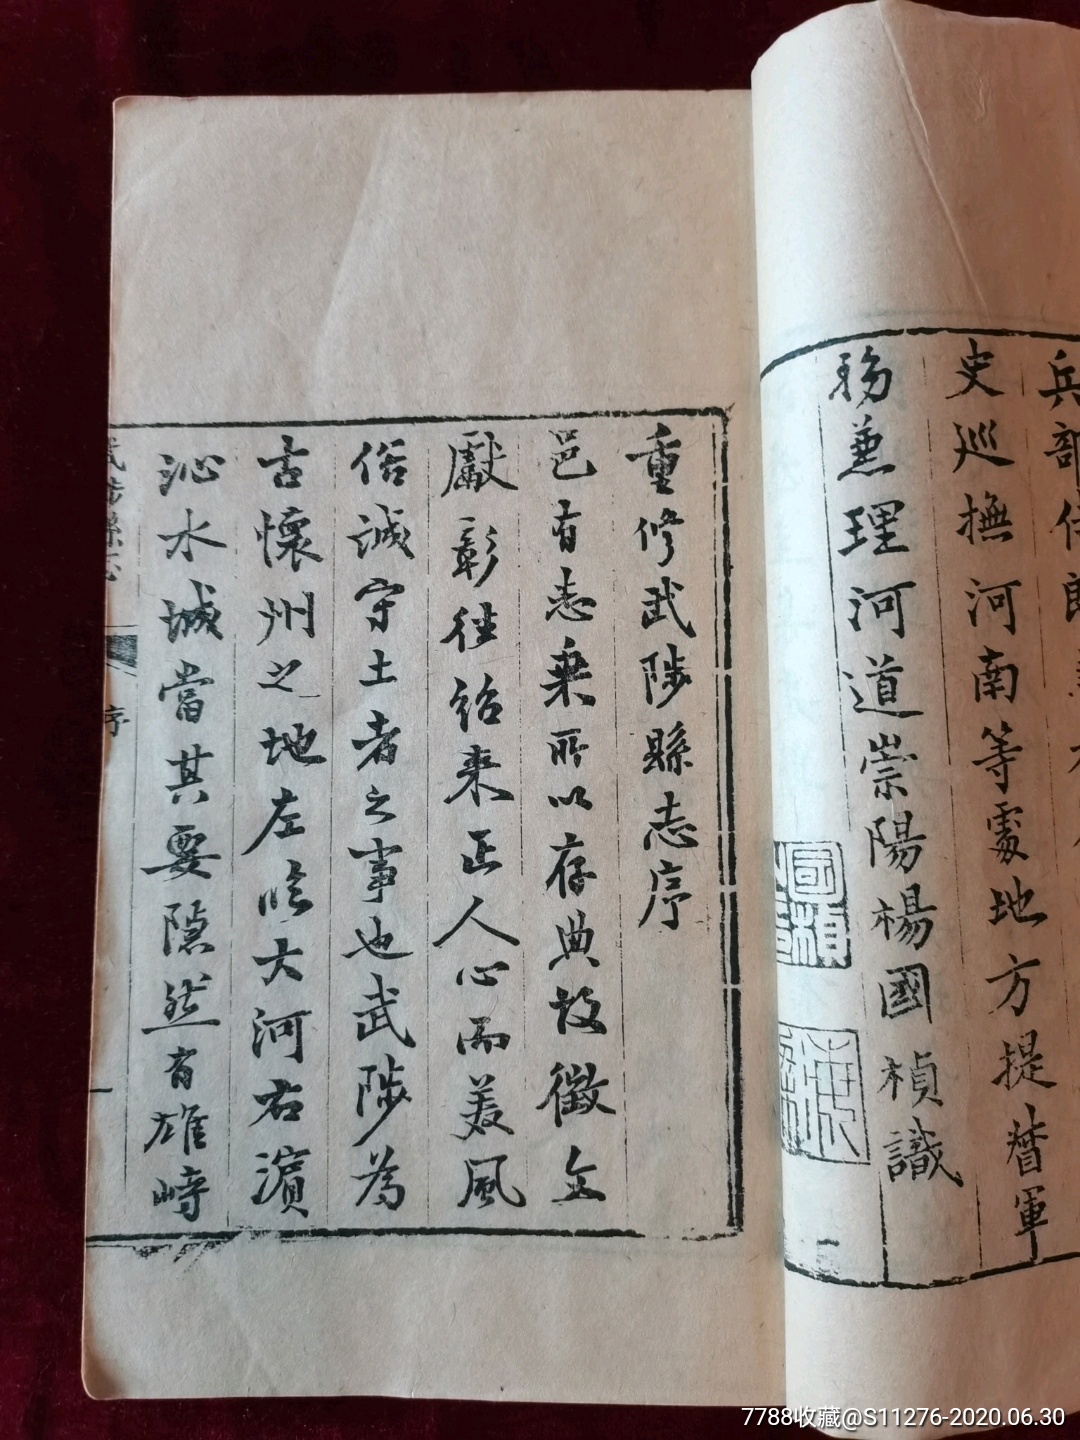 史巡撫河南等處地方提督軍
務兼理河道崇陽楊國楨識
重修武陟縣志序
邑有志乘所以存典故徵文
獻彰往紹来正人心而美風
俗誠守土者之事也武陟為
古懷州之地左临大河右濵
沁水城當其要隠然有雄峙
序
7788收藏@S11276-2020.06.30